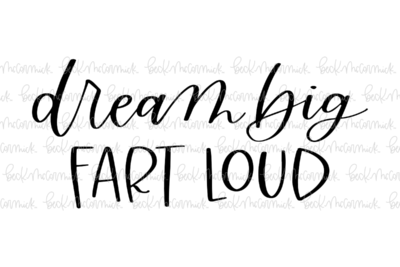 dream big
FART LOUD